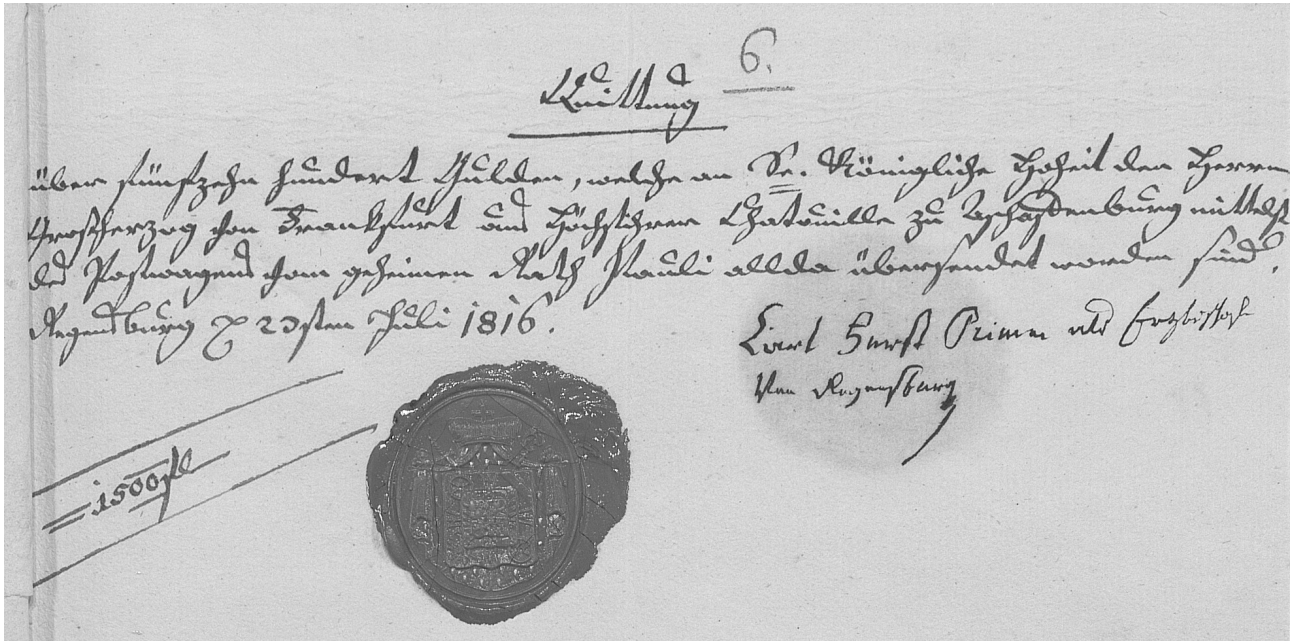 6.
Quittung
über fünfzehn hundert Gulden, welche an Se. Königliche Hoheit den Herrn
Großherzog von Frankfurt aus Höchstihrer Chatouille zu Aschaffenburg mittelst
des Postwagens vom geheimen Rath Pauli allda übersendet worden sind.
Regensburg den 23sten Juli 1816.
Carl Furst Primas als Erzbischof
Von Regensburg
= 1500 fl